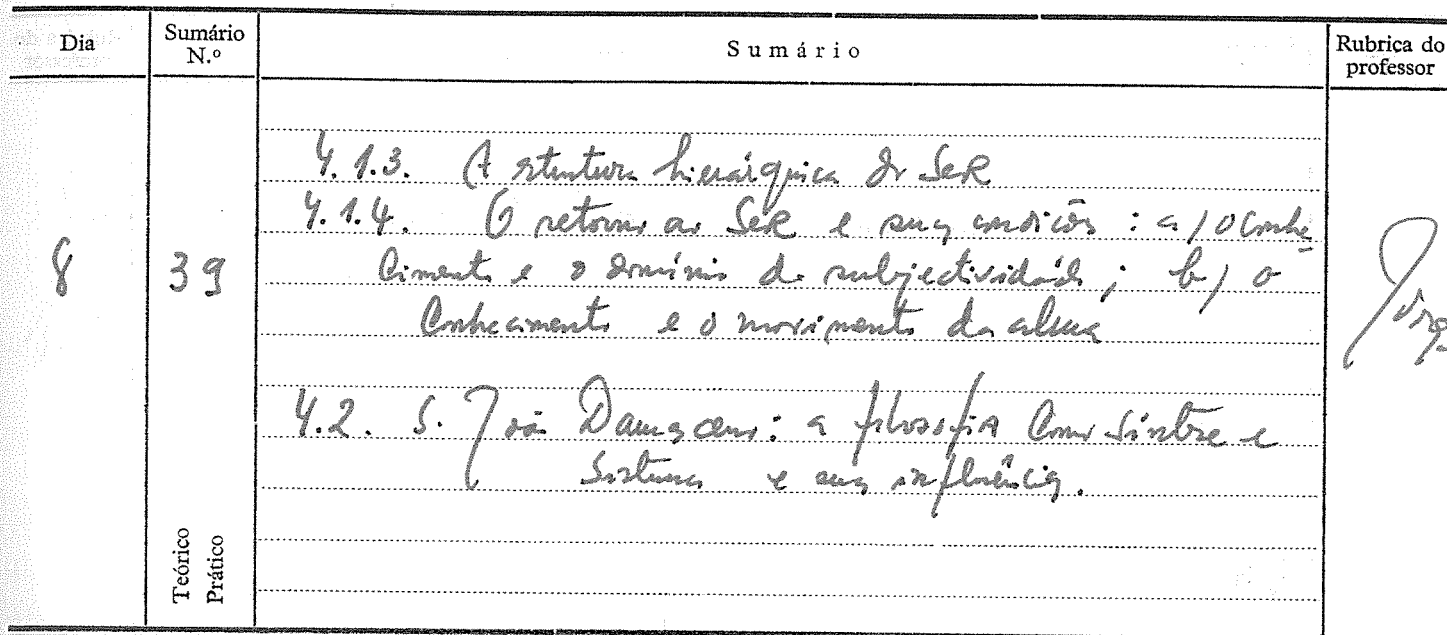 Dia
Sumário N.º
Sumário
Rubrica do professor
8
39
4.1.3. A estrutura hierárquica do Ser
4.1.4. O retorno ao Ser e suas condições : a) o conhe-
cimento e o domínio da subjectividade ; b) o
conhecimento e o movimento da alma
4.2. S. João Damasceno : a filosofia como síntese e
sistema e sua influência.
Teórico
Prático